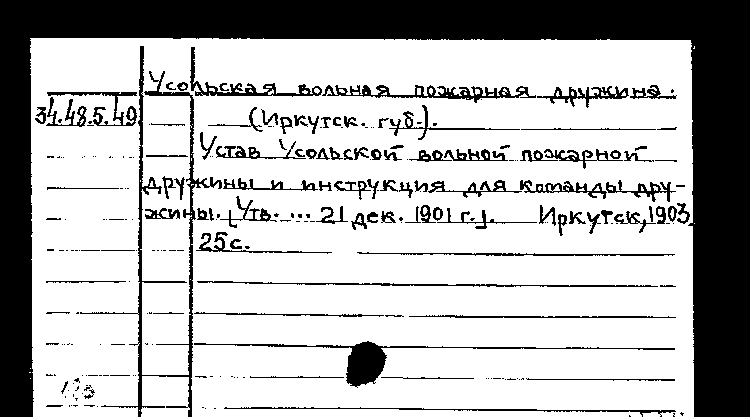 Усольская вольная пожарная дружина.
34.48.5.49
(Иркутск. губ.).
Устав Усольской вольной пожарной
дружины и инструкция для команды дру-
жины. [Утв. ... 21 дек. 1901 г.]. Иркутск, 1903.
25 с.